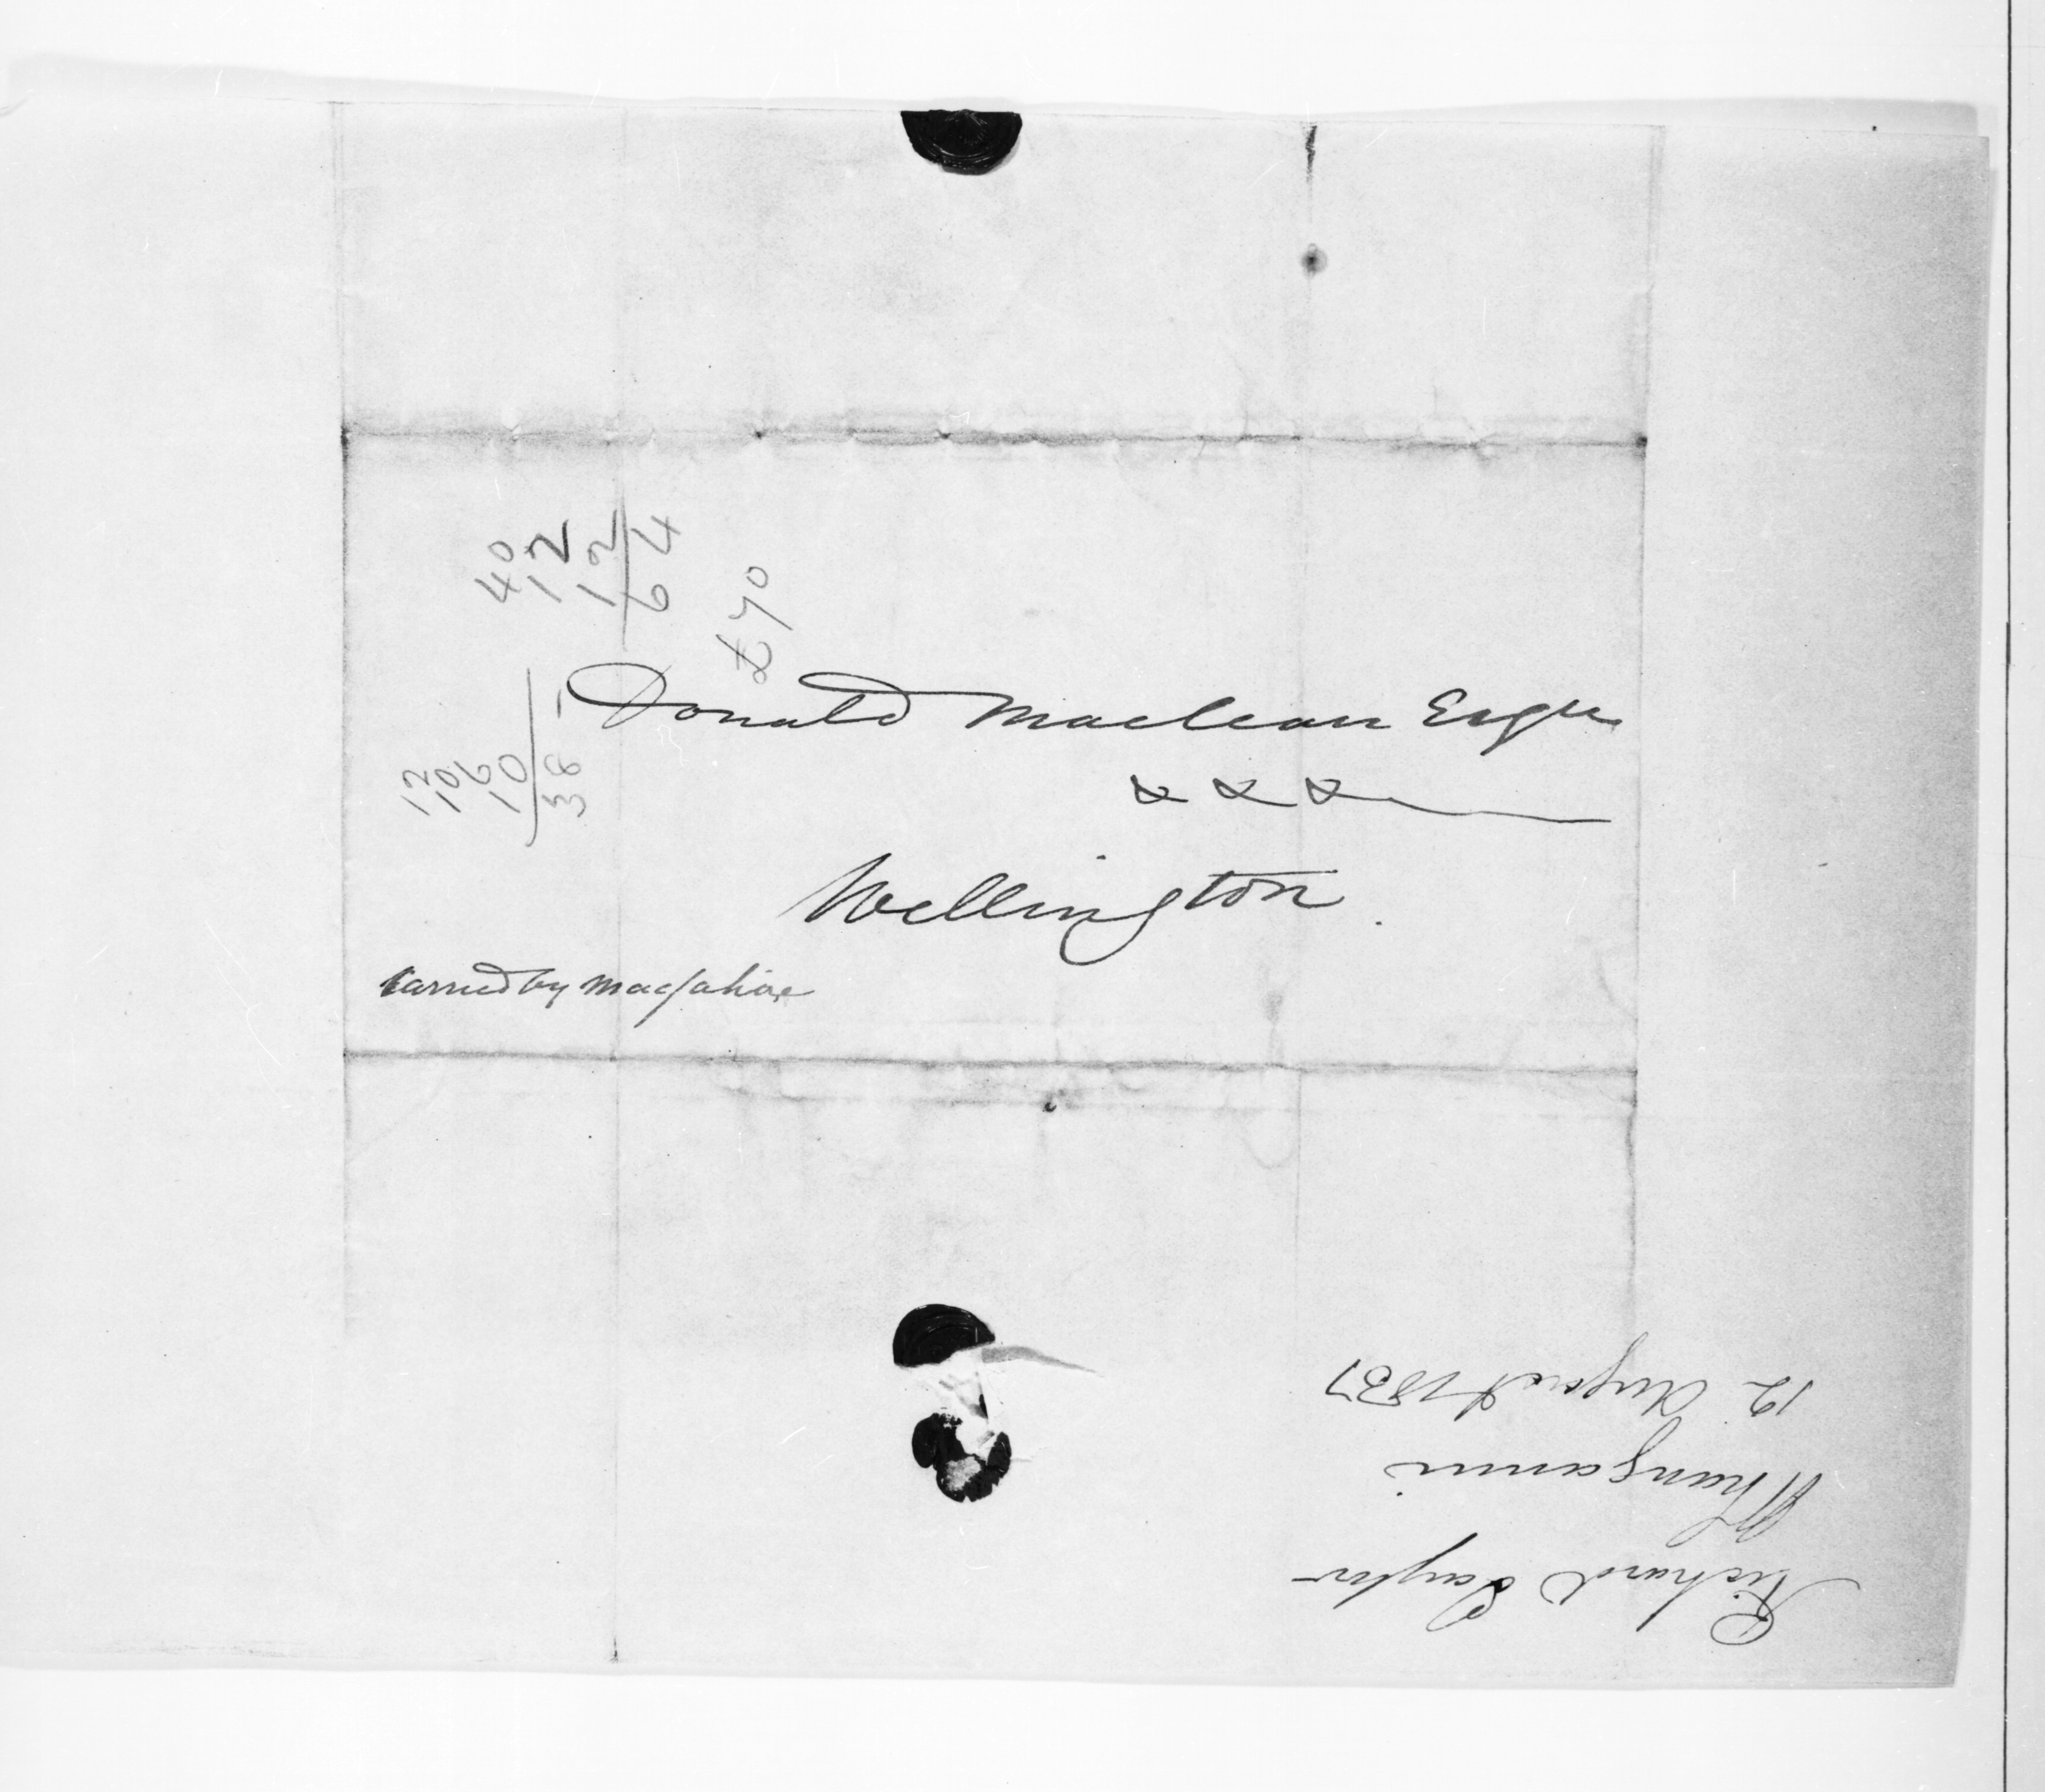 40
12
12
64
£70
12
10
6
10
38 -
Donald Maclean Esqre
x x x
Wellington.
carried by
Richard Taylor
Whanganui
12 August 1857